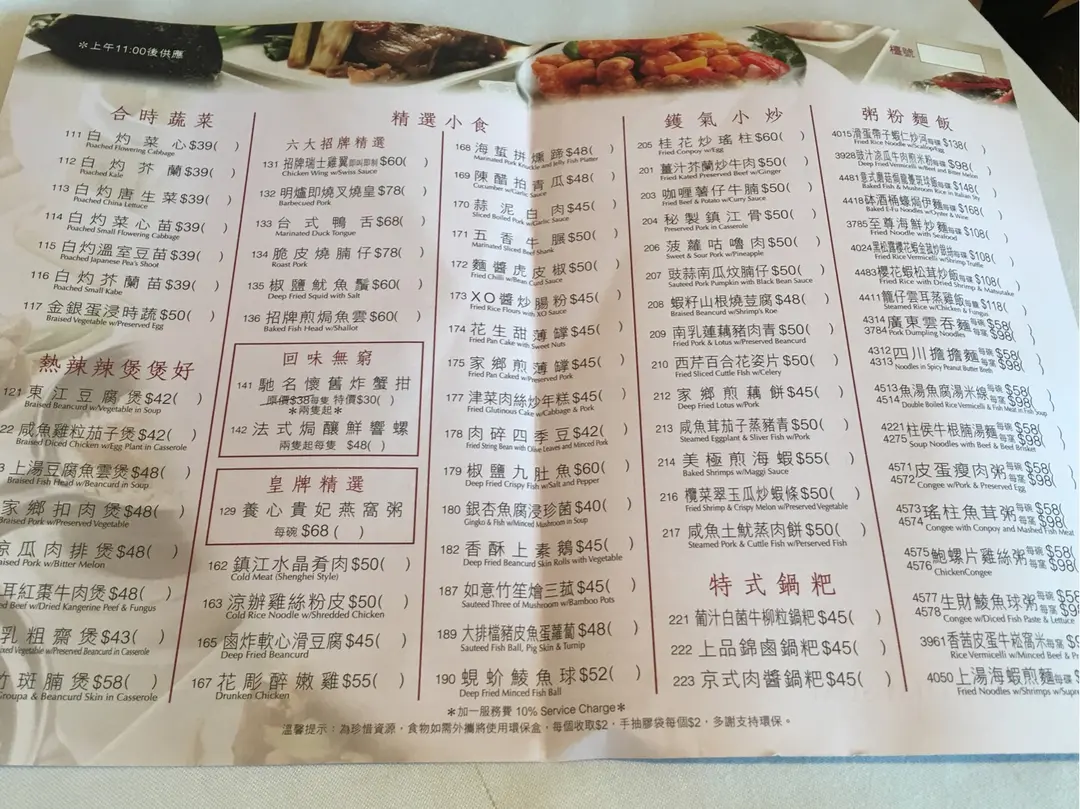 *上午11:00後供應
檯號
合時蔬菜
111 白灼菜心$39( )
Poached Flowering Cabbage
112 白灼芥蘭$39( )
Poached Kale
113 白灼唐生菜$39( )
Poached China Lettuce
114 白灼菜心苗$39( )
Poached Small Flowering Cabbage
115 白灼溫室豆苗$39( )
Poached Japanese Pea's Shoot
116 白灼芥蘭苗$39( )
Poached Small Kabe
117 金銀蛋浸時蔬$50( )
Braised Vegetable w/Preserved Egg
熱辣辣煲煲好
121 東江豆腐煲$42( )
Braised Beancurd w/Vegetable in Soup
22 咸魚雞粒茄子煲$42( )
Braised Diced Chicken w/Egg Plant in Casserole
3 上湯豆腐魚雲煲$48( )
Braised Fish Head w/Beancurd in Soup
家鄉扣肉煲$48( )
Braised Pork w/Preserved Vegetable
涼瓜肉排煲$48( )
aised Pork w/Bitter Melon
耳紅棗牛肉煲$48( )
ed Beef w/Dried Kangerine Peel & Fungus
乳粗齋煲$43( )
ixed Vegetable w/Preserved Beancurd in Casserole
竹斑腩煲$58( )
Groupa & Beancurd Skin in Casserole
精選小食
六大招牌精選
131 招牌瑞士雞翼即叫即制$60( )
Chicken Wing w/Swiss Sauce
132 明爐即燒叉燒皇$78( )
Barbecued Pork
133 台式鴨舌$68( )
Marinated Duck Tongue
134 脆皮燒腩仔$78( )
Roast Pork
135 椒鹽魷魚鬚$60( )
Deep Fried Squid with Salt
136 招牌煎焗魚雲$60( )
Baked Fish Head w/Shallot
回味無窮
141 馳名懷舊炸蟹拑
原價$38每隻 特價$30( )
*兩隻起*
142 法式焗釀鮮響螺
兩隻起每隻 $48( )
皇牌精選
129 養心貴妃燕窩粥
每碗$68( )
162 鎮江水晶肴肉$50( )
Cold Meat (Shenghei Style)
163 涼辦雞絲粉皮$50( )
Cold Rice Noodle w/Shredded Chicken
165 鹵炸軟心滑豆腐$45( )
Deep Fried Beancurd
167 花彫醉嫩雞$55( )
Drunken Chicken
168 海蜇拼燻蹄$48( )
Marinated Pork Knuckle and Jelly Fish Platter
169 陳醋拍青瓜$48( )
Cucumber w/Garlic Sauce
170 蒜泥白肉$45( )
Sliced Boiled Pork w/Garlic Sauce
171 五香牛脤$50( )
Marinated Sliced Beef Shank
172 麵醬虎皮椒$50( )
Fried Chilli w/Bean Curd Sauce
173 XO醬炒腸粉$45( )
Fried Rice Flours with XO Sauce
174 花生甜薄罉$45( )
Fried Pan Cake with Sweet Nuts
175 家鄉煎薄罉$45( )
Fried Pan Caked w/Preserved Pork
177 津菜肉絲炒年糕$45( )
Fried Glutinous Cake w/Cabbage & Pork
178 肉碎四季豆$42( )
Fried String Bean with Olive Leaves and Minced Pork
179 椒鹽九肚魚$60( )
Deep Fried Crispy Fish w/Salt and Pepper
180 銀杏魚腐浸珍菌$40( )
Gingko & Fish w/Minced Mushroom in Soup
182 香酥上素鵝$45( )
Deep Fried Beancurd Skin Rolls with Vegetable
187 如意竹笙燴三菰$45( )
Sauteed Three of Mushroom w/Bamboo Pots
189 大排檔豬皮魚蛋蘿蔔$48( )
Sauteed Fish Ball, Pig Skin & Turnip
190 蜆蚧鯪魚球$52( )
Deep Fried Minced Fish Ball
鑊氣小炒
205 桂花炒瑤柱$60( )
Fried Conpoy w/Egg
201 薑汁芥蘭炒牛肉$50( )
Fried Kaled Preserved Beef w/Ginger
203 咖喱薯仔牛腩$50( )
Fried Beef & Potato w/Curry Sauce
204 秘製鎮江骨$50( )
Preserved Pork in Casserole
206 菠蘿咕嚕肉$50( )
Sweet & Sour Pork w/Pineapple
207 豉蒜南瓜炆腩仔$50( )
Sauteed Pork Pumpkin with Black Bean Sauce
208 蝦籽山根燒荳腐$48( )
Braised Beancurd w/Shrimp's Roe
209 南乳蓮藕豬肉青$50( )
Fried Pork & Lotus w/Preserved Beancurd
210 西芹百合花姿片$50( )
Fried Sliced Cuttle Fish w/Celery
212 家鄉煎藕餅$50( )
Deep Fried Lotus w/Pork
213 咸魚茸茄子蒸豬青$50( )
Steamed Eggplant & Sliver Fish w/Pork
214 美極煎海蝦$55( )
Baked Shrimps w/Maggi Sauce
216 欖菜翠玉瓜炒蝦條$50( )
Fried Shrimp & Crispy Melon w/Preserved Vegetable
217 咸魚土魷蒸肉餅$50( )
Steamed Pork & Cuttle Fish w/Perserved Fish
特式鍋粑
221 葡汁白菌牛柳粒鍋粑$45( )
222 上品錦鹵鍋粑$45( )
223 京式肉醬鍋粑$45( )
粥粉麵飯
4015 滑蛋帶子蝦仁炒河每碟$138( )
Fried Rice Noodle w/Scallop/Egg
3928 豉汁涼瓜牛肉煎米粉每碟$98( )
Deep Fried Vermicelli w/Beef and Bitter Melon
4481 意式蘑菇焗龍躉斑球飯每碟$148( )
Baked Fish & Mushroom Rice in Italian Sky
4418 砵酒桶蠔焗伊麵每碟$168( )
Baked E-Fu Noodles w/Oyster & Wine
3785 至尊海鮮炒麵每碟$108( )
Fried Noodle with Seafood
4024 黑松露櫻花蝦金菇炒飯每碟$108( )
Fried Rice Vermicelli w/Shrimp Truffle
4483 櫻花蝦松茸炒飯每碟$108( )
Fried Rice with Dried Shrimp & Matsutake
4411 籠仔雲耳蒸雞飯每籠$118( )
Steamed Rice w/Chicken & Fungus
4314 3784 廣東雲吞麵每碗$58( 每窩$98( )
Pork Dumpling Noodles
4312 4313 四川擔擔麵每碗$58( 每窩$98( )
Noodles in Spicy Peanut Butter Breth
4513 4514 魚湯魚腐湯米線每碗$58( 每窩$98( )
Double Boiled Rice Vermicelli & Fish Meat in Fish Soup
4221 4275 柱侯牛根腩湯麵每碗$58( 每窩$98( )
Soup Noodles with Beef & Beef Brisket
4571 4572 皮蛋瘦肉粥每碗$58( 每窩$98( )
Congee w/Pork & Preserved Egg
4573 4574 瑤柱魚茸粥每碗$58( 每窩$98( )
Congee with Conpoy and Mashed Fish Meat
4575 4576 鮑螺片雞絲粥每碗$58( 每窩$98(
ChickenCongee
4577 4578 生財鯪魚球粥每碗$58 每窩$98
Congee w/Diced Fish Paste & Lettuce
3961 香茜皮蛋牛崧窩米每窩$
Rice Vermicelli w/Minced Beef & P
4050 上湯海蝦煎麵每碟$
Fried Noodles w/Shrimps w/Supre
*加一服務費 10% Service Charge*
溫馨提示：為珍惜資源，食物如需外攜將使用環保盒，每個收取$2，手抽膠袋每個$2，多謝支持環保。